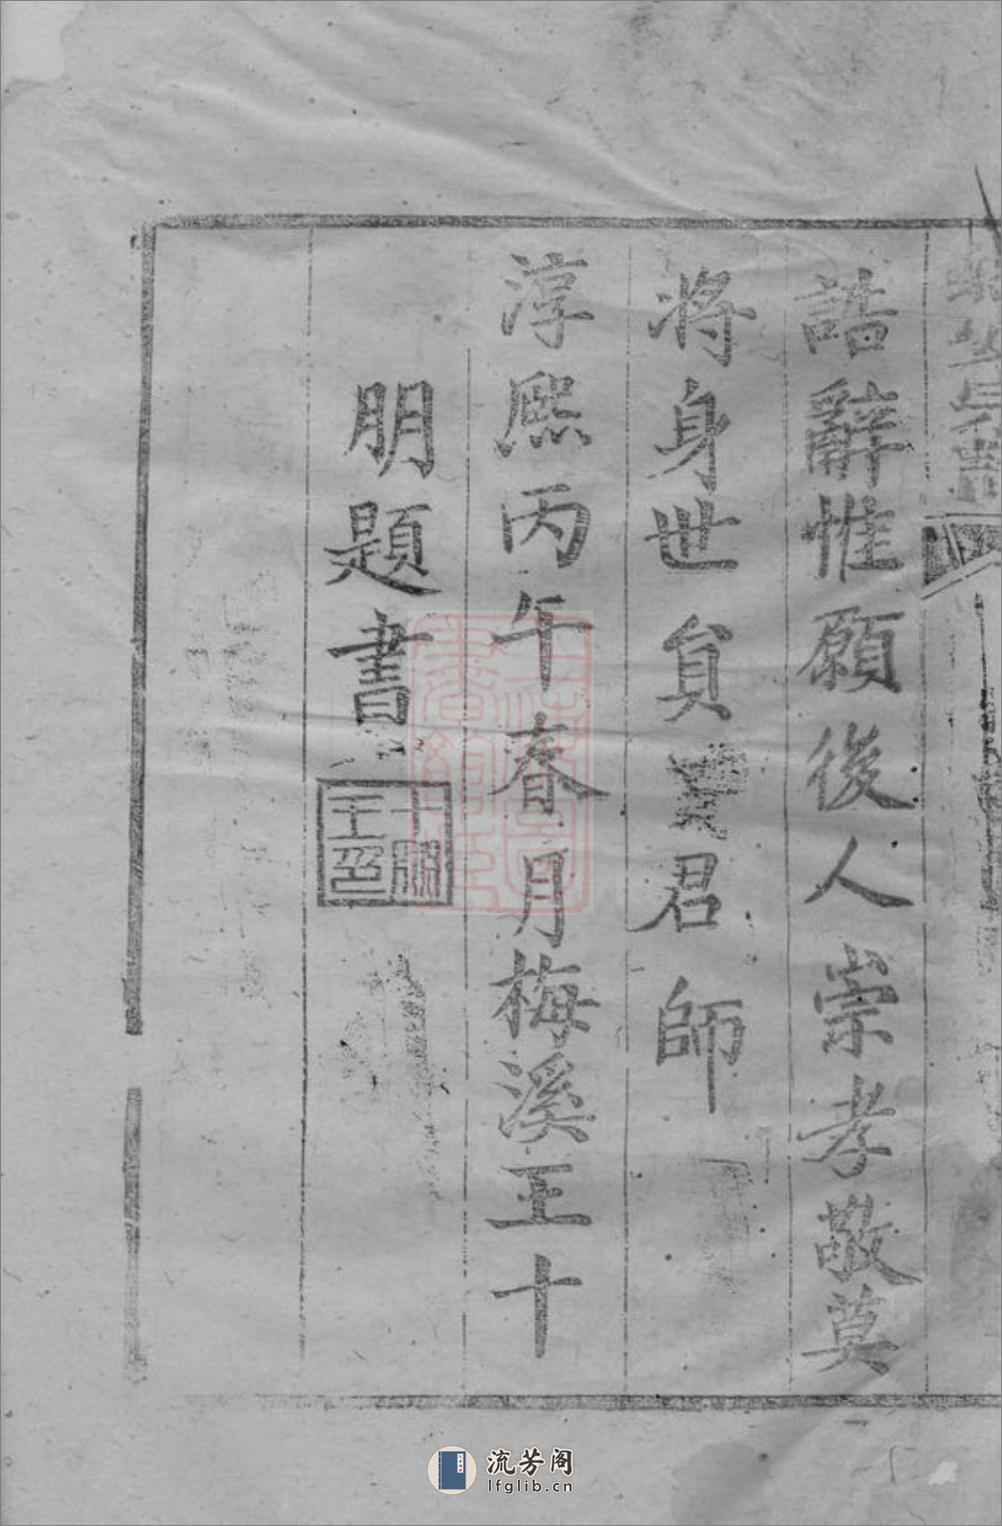 誥辭惟願後人崇孝敬莫
將身世負君師
淳熙丙午春月梅溪王十
朋題書
流芳阁
lfglib.cn